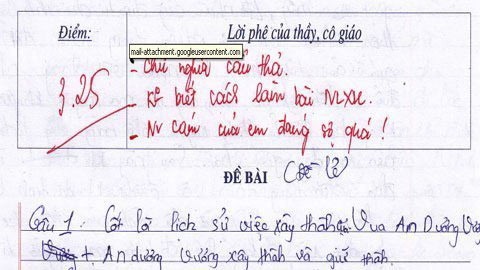 Điểm:
Lời phê của thầy, cô giáo
mail-attachment.googleusercontent.com
- Chữ nghĩa cẩu thả.
3.25
- K° biết cách làm bài NLXH.
- cảm của em đáng sợ quá !
ĐỀ BÀI
Câu 1: Cốt lõi lịch sử việc xây thành Vua An Dương Vương
+ An dương vương xây thành và giữ thành.